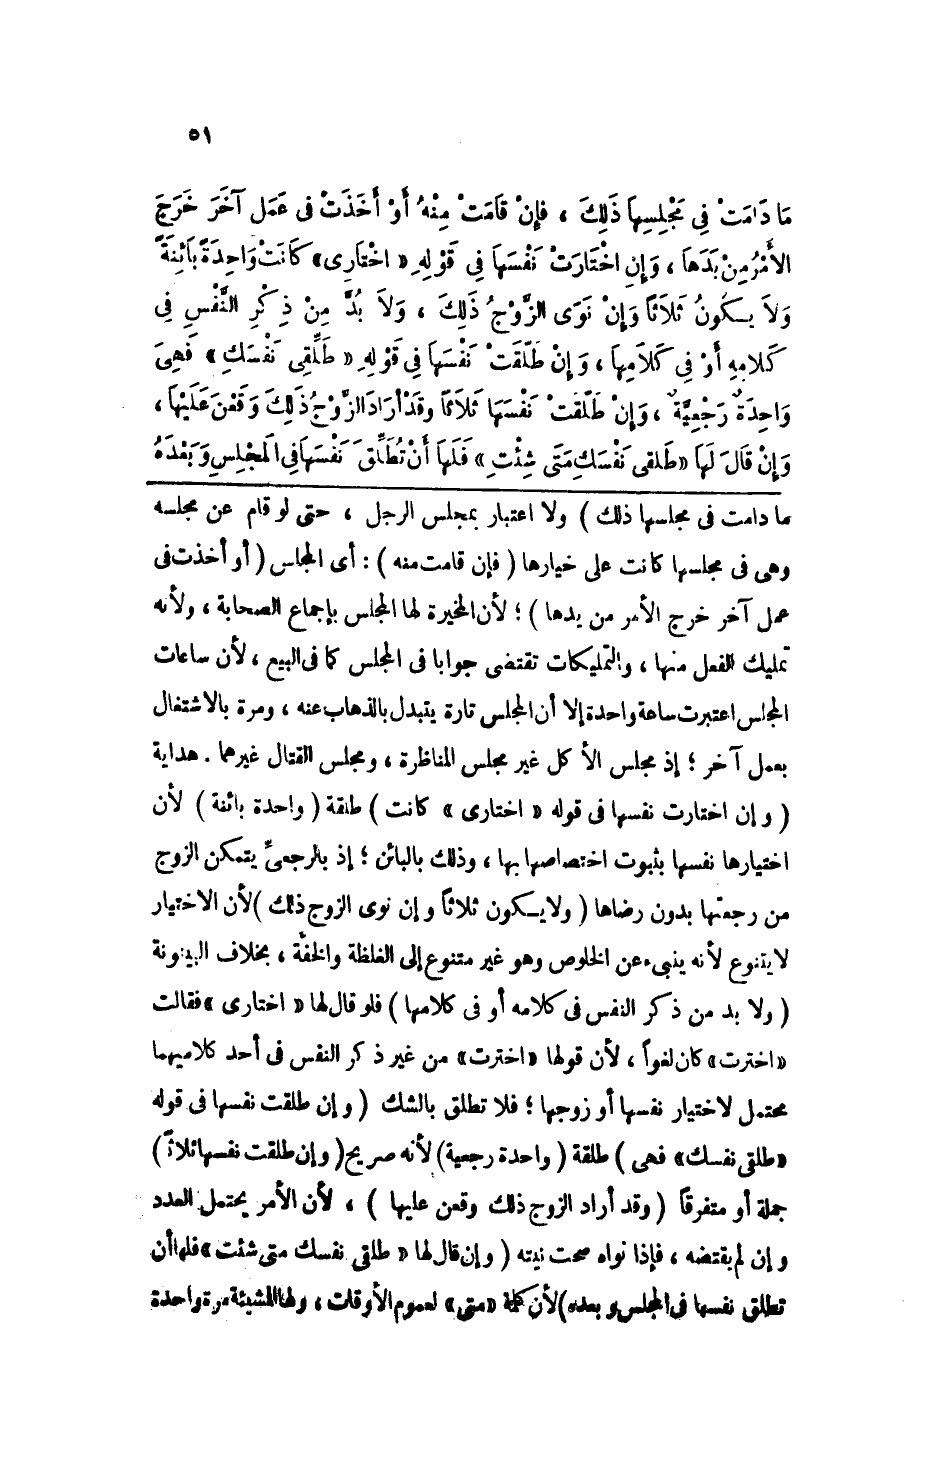 ٥١
مَا دَامَتْ فِي مَجْلِسِهَا ذَلِكَ ، فإِنْ قَامَتْ مِنْهُ أَوْ أَخَذَتْ فى عَمَلٍ آخَرَ خَرَجَ
الأَمْرُ مِنْ يَدَهَا ، وَإِنِ اخْتَارَتْ نَفْسَهَا فِي قَوْلِهِ « اخْتَارِى » كَانَتْ وَاحِدَةً بَائِنَةً
وَلاَ يَكُونُ ثَلاَثاً وَإِنْ نَوَى الزَّوْجُ ذَلِكَ ، وَلاَ بُدَّ مِنْ ذِكْرِ النَّفْسِ فِى
كَلامِهِ أَوْ فِى كَلاَمِهَا ، وَإِنْ طَلَّقَتْ نَفْسَهَا فِي قَوْلِهِ « طَلِّقِى نَفْسَكِ » فَهِىَ
وَاحِدَةٌ رَجْعِيَّةٌ ، وَإِنْ طَلَّقَتْ نَفْسَهَا ثَلاَثاً وقَدْ أَرَادَ الزَّوْجُ ذَلِكَ وَقَعْنَ عَلَيْهَا ،
وَإِنْ قَالَ لَهَا « طَلقى نَفْسَكِ مَتَى شِئْتِ » فَلَهَا أَنْ تُطَلِّقَ نَفْسَهَا فِى الَمجْلِسِ وَبَعْدَهُ
ما دامت فى مجلسها ذلك ) ولا اعتبار بمجلس الرجل ، حتى لو قام عن مجلسه
وهى فى مجلسها كانت على خيارها ( فإن قامت منه ) : أى المجلس ( أو أخذت فى
عمل آخر خرج الأمر من يدها ) ؛ لأن المخيرة لها المجلس بإجماع الصحابة ، ولأنه
تمليك الفعل منها ، والتمليكات تقتضى جوابا فى المجلس كما فى البيع ، لأن ساعات
المجلس اعتبرت ساعة واحدة إلا أن المجلس تارة يتبدل بالذهاب عنه ، ومرة بالاشتغال
بعمل آخر ؛ إذ مجلس الأكل غير مجلس المناظرة ، ومجلس القتال غيرهما . هداية
( وإن اختارت نفسها فى قوله « اختارى » كانت ) طلقة ( واحدة بائنة ) لأن
اختيارها نفسها بثبوت اختصاصها بها ، وذلك بالبائن ؛ إذ بالرجعىِّ يتمكن الزوج
من رجعتها بدون رضاها ( ولا يكون ثلاثاً وإن نوى الزوج ذلك ) لأن الاختيار
لا يتنوع لأنه ينبىء عن الخلوص وهو غير متنوع إلى الغلظة والخفّة ، بخلاف البينونة
( ولا بد من ذكر النفس فى كلامه أو فى كلامها ) فلو قال لها « اختارى » فقالت
« اخترت » كان لغواً ، لأن قولها « اخترت » من غير ذكر النفس فى أحد كلاميهما
محتمل لاختيار نفسها أو زوجها ؛ فلا تطلق بالشك ( وإن طلقت نفسها فى قوله
« طلقى نفسك » فهى ) طلقة ( واحدة رجعية ) لأنه صريح ( وإن طلقت نفسها ثلاثاً )
جملة أو متفرقاً ( وقد أراد الزوج ذلك وقعن عليها ) ، لأن الأمر يحتمل العدد
وإن لم يقتضه ، فإذا نواه صحت نيته ( وإن قال لها « طلقى نفسك متى شئت » فلها أن
تطلق نفسها فى المجلس وبعده ) لأن كلمة « متى » لعموم الأوقات ، ولها المشيئة مرة واحدة